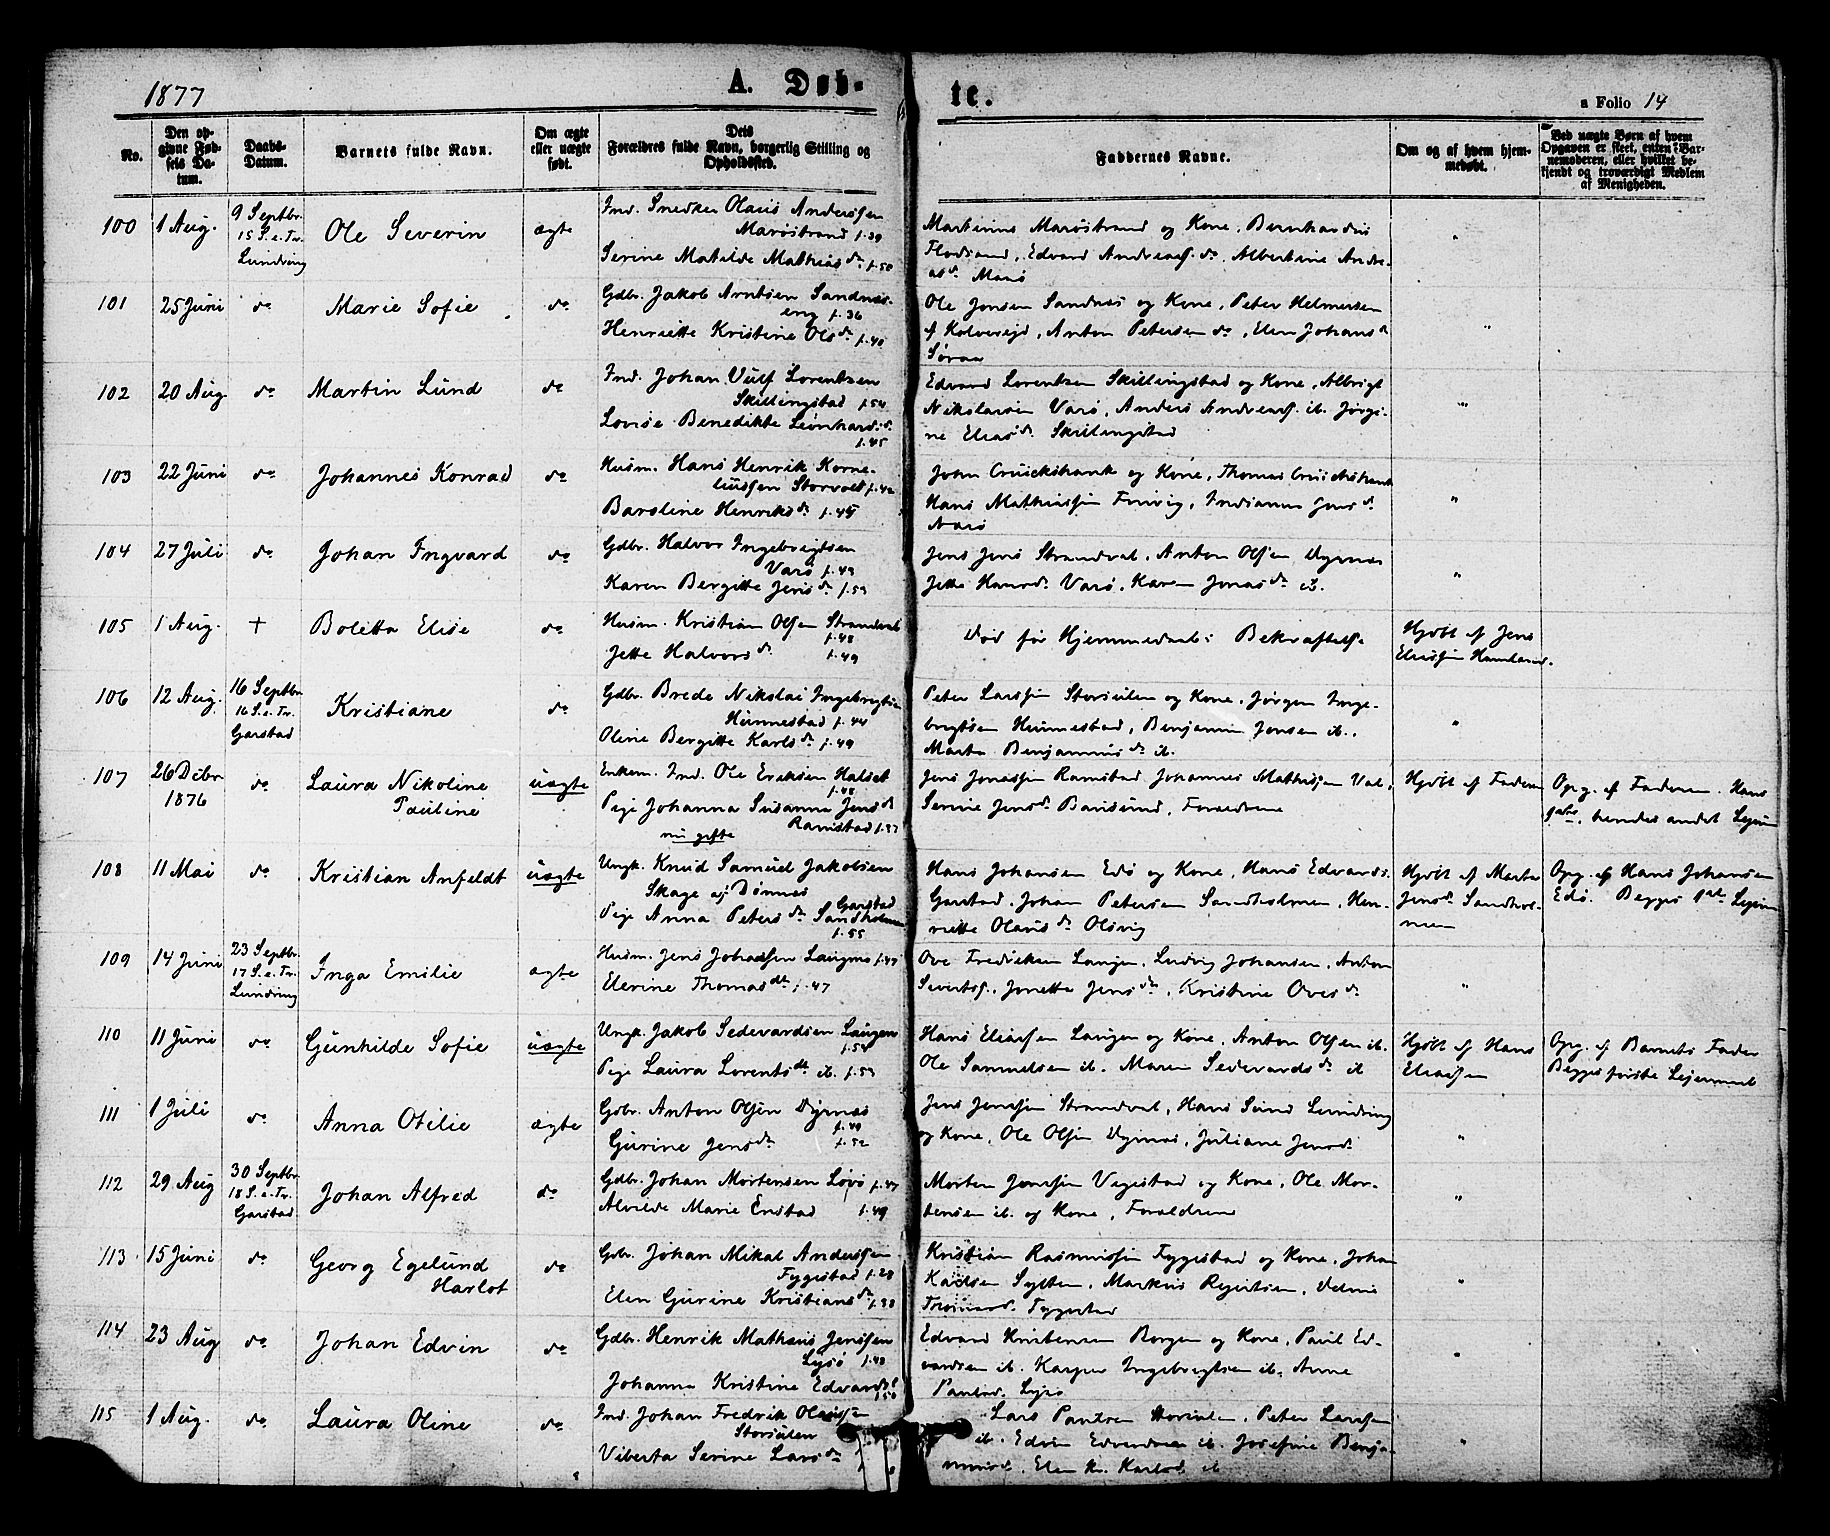 1877
A. Døb-
te.
a Folio 14
No.
Den op-
givne Fød-
sels Da-
tum.
Daabs-
Datum.
Barnets fulde Navn.
Om ægte
eller uægte
født.
Dets
Forældres fulde Navn, borgerlig Stilling og
Opholdssted.
Faddernes Navne.
Om og af hvem hjem-
medøbt.
Ved uægte Børn af hvem
Opgaven er skeet, enten Bar-
nemoderen, eller hvilket be-
kjendt og troværdigt Medlem
af Menigheden.
100
1 Aug.
9 Septbr.
15 S. e. Tr.
Lundring
Ole Severin
ægte
Ind. Snedker Olaus Anderssen
Marøstrand f. 39
Serine Matilde Mathiasdr. f. 50
Martinus Marøstrand og Kone, Bernhardus
Flodsand, Edvard Andreass. do, Albertine Andre-
asdr. Marø
"
101
25 Juni
do
Marie Sofie
do
Gdbr. Jakob Arntsen Sandnæs-
eng f. 36
Henriette Kristine Olsdr. f. 40
Ole Jensen Sandnæs og Kone, Peter Helmersen
af Kolvereid, Anton Petersen do, Elen Johansdr
Søraa
"
102
20 Aug
do
Martin Lund
do
Ind. Johan Vulf Lorentzen
Skillingstad f. 54
Lovise Benedikte Leonhardsdr.
f. 45
Edvard Lorentzen Skillingstad og Kone, Albrigt
Nikolaisen Varø, Anders Andreass. ib. Jørgi-
ne Eliasdr. Skillingstad
"
103
22 Juni
do
Johannes Konrad
do
Husm. Hans Henrik Korne-
liussen Storvolt f. 42
Baroline Henriksdr. f. 45
John Cruickshank og Kone, Thomas Cruickshank
Hans Mathiassen Finvig, Indianna Jensdr
Varø
"
104
27 Juli
do
Johan Ingvard
do
Gdbr. Halvor Ingebrigtsen
Varø f. 49
Karen Bergitte Jensdr. f. 53
Jens Jens Strandval, Anton Olsen Dyrnæs
Jette Hansdr. Varø, Karen Jonasdr. ib.
"
105
1 Aug.
+
Boletta Elise
do
Husm. Kristian Olsen Strandval
f. 48
Jette Halvorsdr.
f. 49
Død før Hjemmedaabs Bekræftelse
Hjdbt af Jens
Eliassen Hamland.
106
12 Aug.
16 Septbr.
16 S. e. Tr.
Garstad
Kristiane
do
Gdbr. Brede Nikolai Ingebrigtsen
Hunnestad f. 44
Oline Bergitte Karlsdr. f. 49
Peter Larssen Storsulen og Kone, Jørgen Inge-
brigtsen Hunnestad, Benjamin Jensen ib.,
Marta Benjaminsdr. ib.
"
107
26 Dcbr
1876
do
Laura Nikoline
Pauline
uægte
Enkem. Ind. Ole Eriksen Halset
f. 48
Pige Johanna Susanna Jensdr
Ramstad f. 37
nu gifte
Jens Jonassen Ramstad Johannes Mathisen Val,
Serine Jensdr. Barøsund, Forældrene
Hjdbt af Faderen
Opg. af Faderen. Hans
1ste, hendes andet Lejerm
108
11 Mai
do
Kristian Anfeldt
uægte
Ungk. Knud Samuel Jakobsen
Skage af Dønnes
Garstad
Pige Anna Petersdr. Sandholmen
f. 55
Hans Johansen Edø og Kone, Hans Edvards.
Garstad, Johan Petersen Sandholmen, Hen-
riette Olausdr. Olsvig
Hjdbt af Marta
Jensdr. Sandhol-
men
Opg. af Hans Johansen
Edø. Begges 1ste Lejerm
109
14 Juni
23 Septbr.
17 S. e. Tr.
Lundring
Inga Emilie
ægte
Husm. Jens Johansen Laugnes f. 47
Elerine Thomasdtr f. 47
Ove Fredriksen Laugen, Ludvig Johansen, Anton
Sivertss., Jonetta Jensdr., Kristine Ovesdr
"
110
11 Juni
do
Gunhilde Sofie
uægte
Ungk. Jakob Sedevardsen Laugen
f. 54
Pige Laura Lorentsdtr ib. f. 53
Hans Eliassen Laugen og Kone, Anton Olsen ib.
Ole Samuelsen ib. Maren Sedevardsdr ib
Hjdbt af Hans
Eliassen
Opg. af Barnets Fader
Begges første Lejermaal
111
1 Juli
do
Anna Otilie
ægte
Gdbr. Anton Olsen Dyrnæs
f. 49
Gurine Jensdr.
f. 52
Jens Jenssen Strandval, Hans Sund Lundring
og Kone, Ole Olsen Dyrnæs, Juliane Jensdr.
"
112
29 Aug
30 Septbr.
18 S. e. Tr.
Garstad
Johan Alfred
do
Gdbr. Johan Mortensen Løvø f. 47
Alvilde Marie Enstad f. 49
Morten Jenssen Vegestad og Kone, Ole Mor-
tensen ib. og Kone, Forældrene
"
113
15 Juni
do
Georg Egelund
Harlot
do
Gdbr. Johan Mikal Anderssen
Fyggestad f. 28
Elen Gurine Kristiansdr f. 38
Kristian Rasmussen Fyggestad og Kone, Johan
Karlsen Sylten, Markus Rejertsen,
Fyggestad
"
114
23 Aug
do
Johan Edvin
do
Gdbr. Henrik Mathias Jenssen
Lysø f. 49
Johanna Kristine Edvardsd
f. 50
Edvard Kristensen Borgen og Kone, Paul Ed-
vardsen ib. Kasper Ingebrigtsen ib. Anne
Paulsd. Lysø
"
115
1 Aug.
do
Laura Oline
do
Ind. Johan Fredrik Olaussen
Storsulen
Viberta Serine Larsdr
Lars Paulsen Storsulen, Peter Larssen
ib. Edvin Edvardsen ib. Josefine Benja-
minsd., Elen K. Karlsd. ib
"